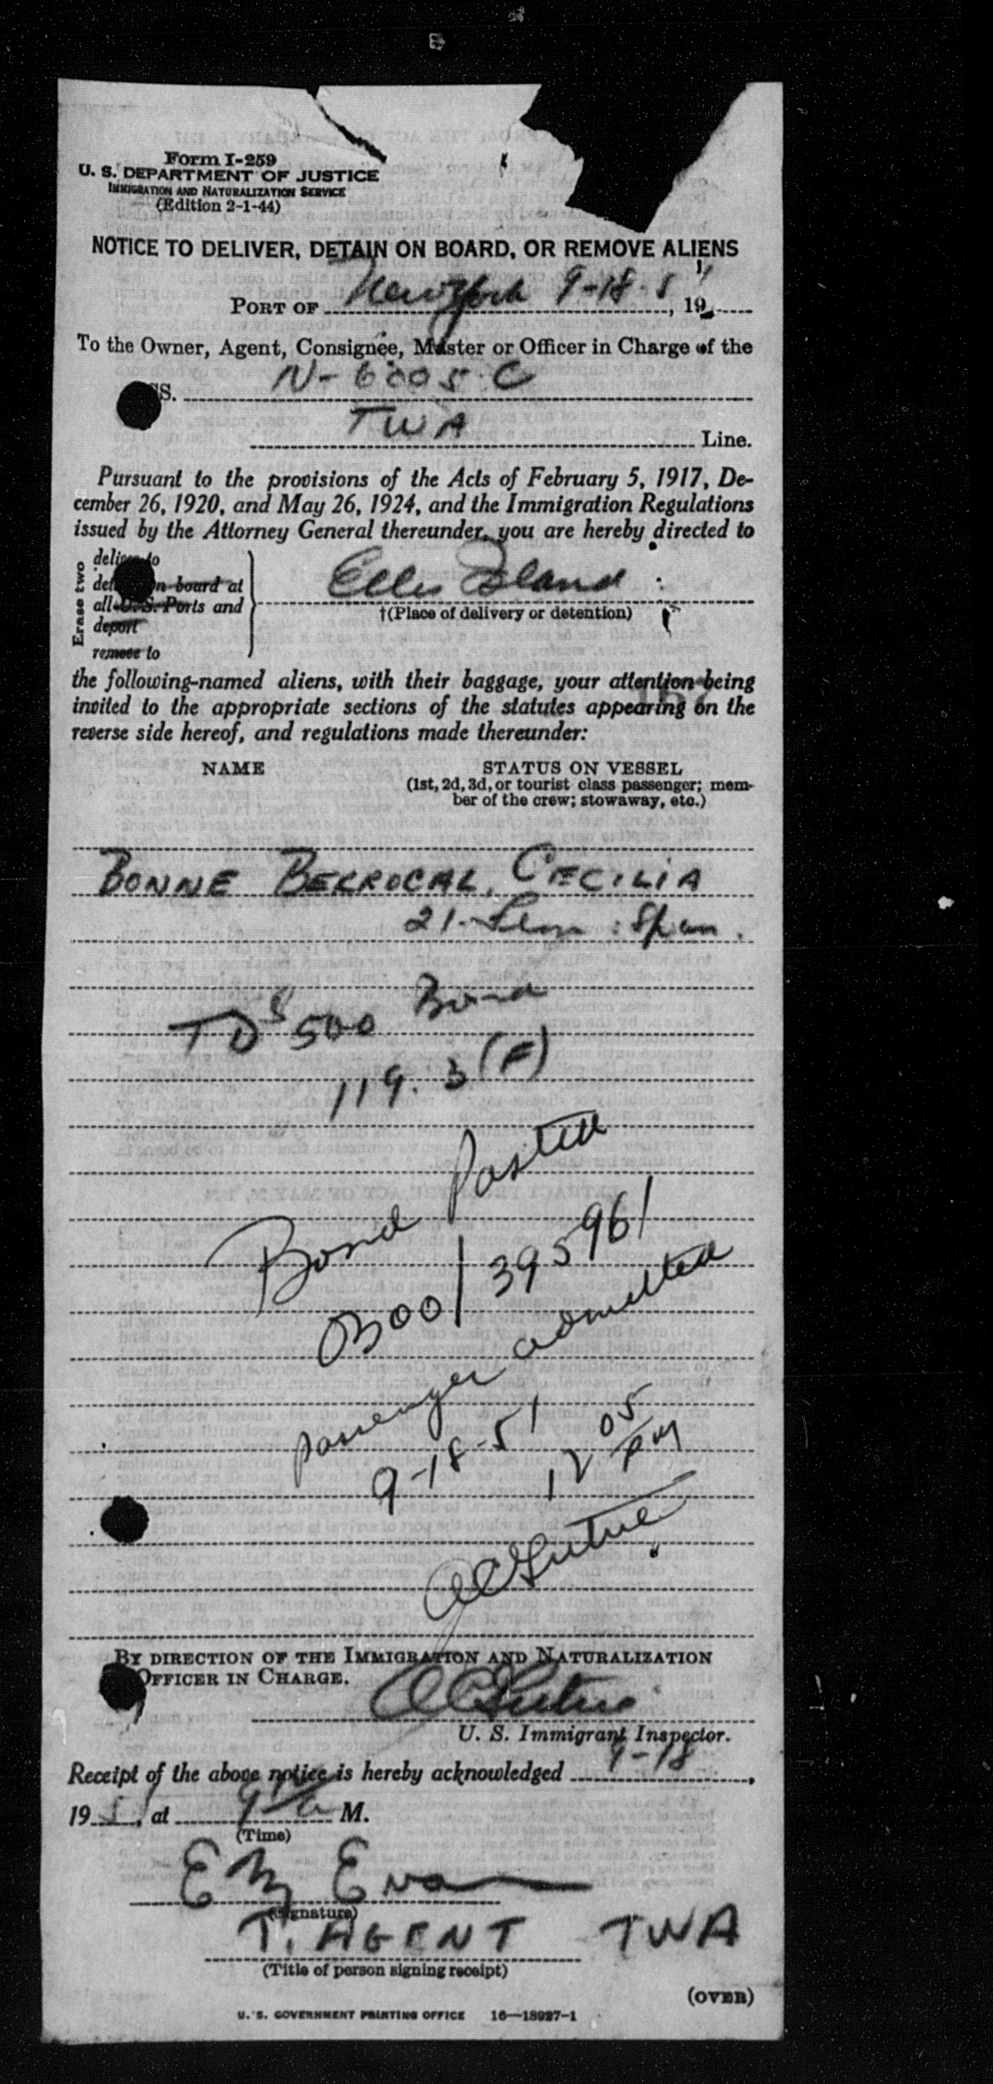 Form I-259
U. S. DEPARTMENT OF JUSTICE
IMMIGRATION AND NATURALIZATION SERVICE
(Edition 2-1-44)
NOTICE TO DELIVER, DETAIN ON BOARD, OR REMOVE ALIENS
PORT OF New York 9-18-51, 19
To the Owner, Agent, Consignee, Master or Officer in Charge of the
SS. N-6005 C
TWA Line.
Pursuant to the provisions of the Acts of February 5, 1917, De-
cember 26, 1920, and May 26, 1924, and the Immigration Regulations
issued by the Attorney General thereunder, you are hereby directed to
Erase two
deliver to
detain on board at
all U.S. Ports and
deport
remove to
Ellis Island
†(Place of delivery or detention)
the following-named aliens, with their baggage, your attention being
invited to the appropriate sections of the statutes appearing on the
reverse side hereof, and regulations made thereunder:
NAME STATUS ON VESSEL
(1st, 2d, 3d, or tourist class passenger; mem-
ber of the crew; stowaway, etc.)
BONNE BERROCAL, CECILIA
21-Fem : Span.
TD $500 Bond
119.3 (F)
Bond Posted
0300/395961
passenger admitted
9-18-51 12 05 PM
By DIRECTION OF THE IMMIGRATION AND NATURALIZATION
OFFICER IN CHARGE.
U. S. Immigrant Inspector.
Receipt of the above notice is hereby acknowledged 9-18,
19 51, at M.
(Time)
(Signature)
T. AGENT TWA
(Title of person signing receipt)
(OVER)
U. S. GOVERNMENT PRINTING OFFICE 16—18927-1